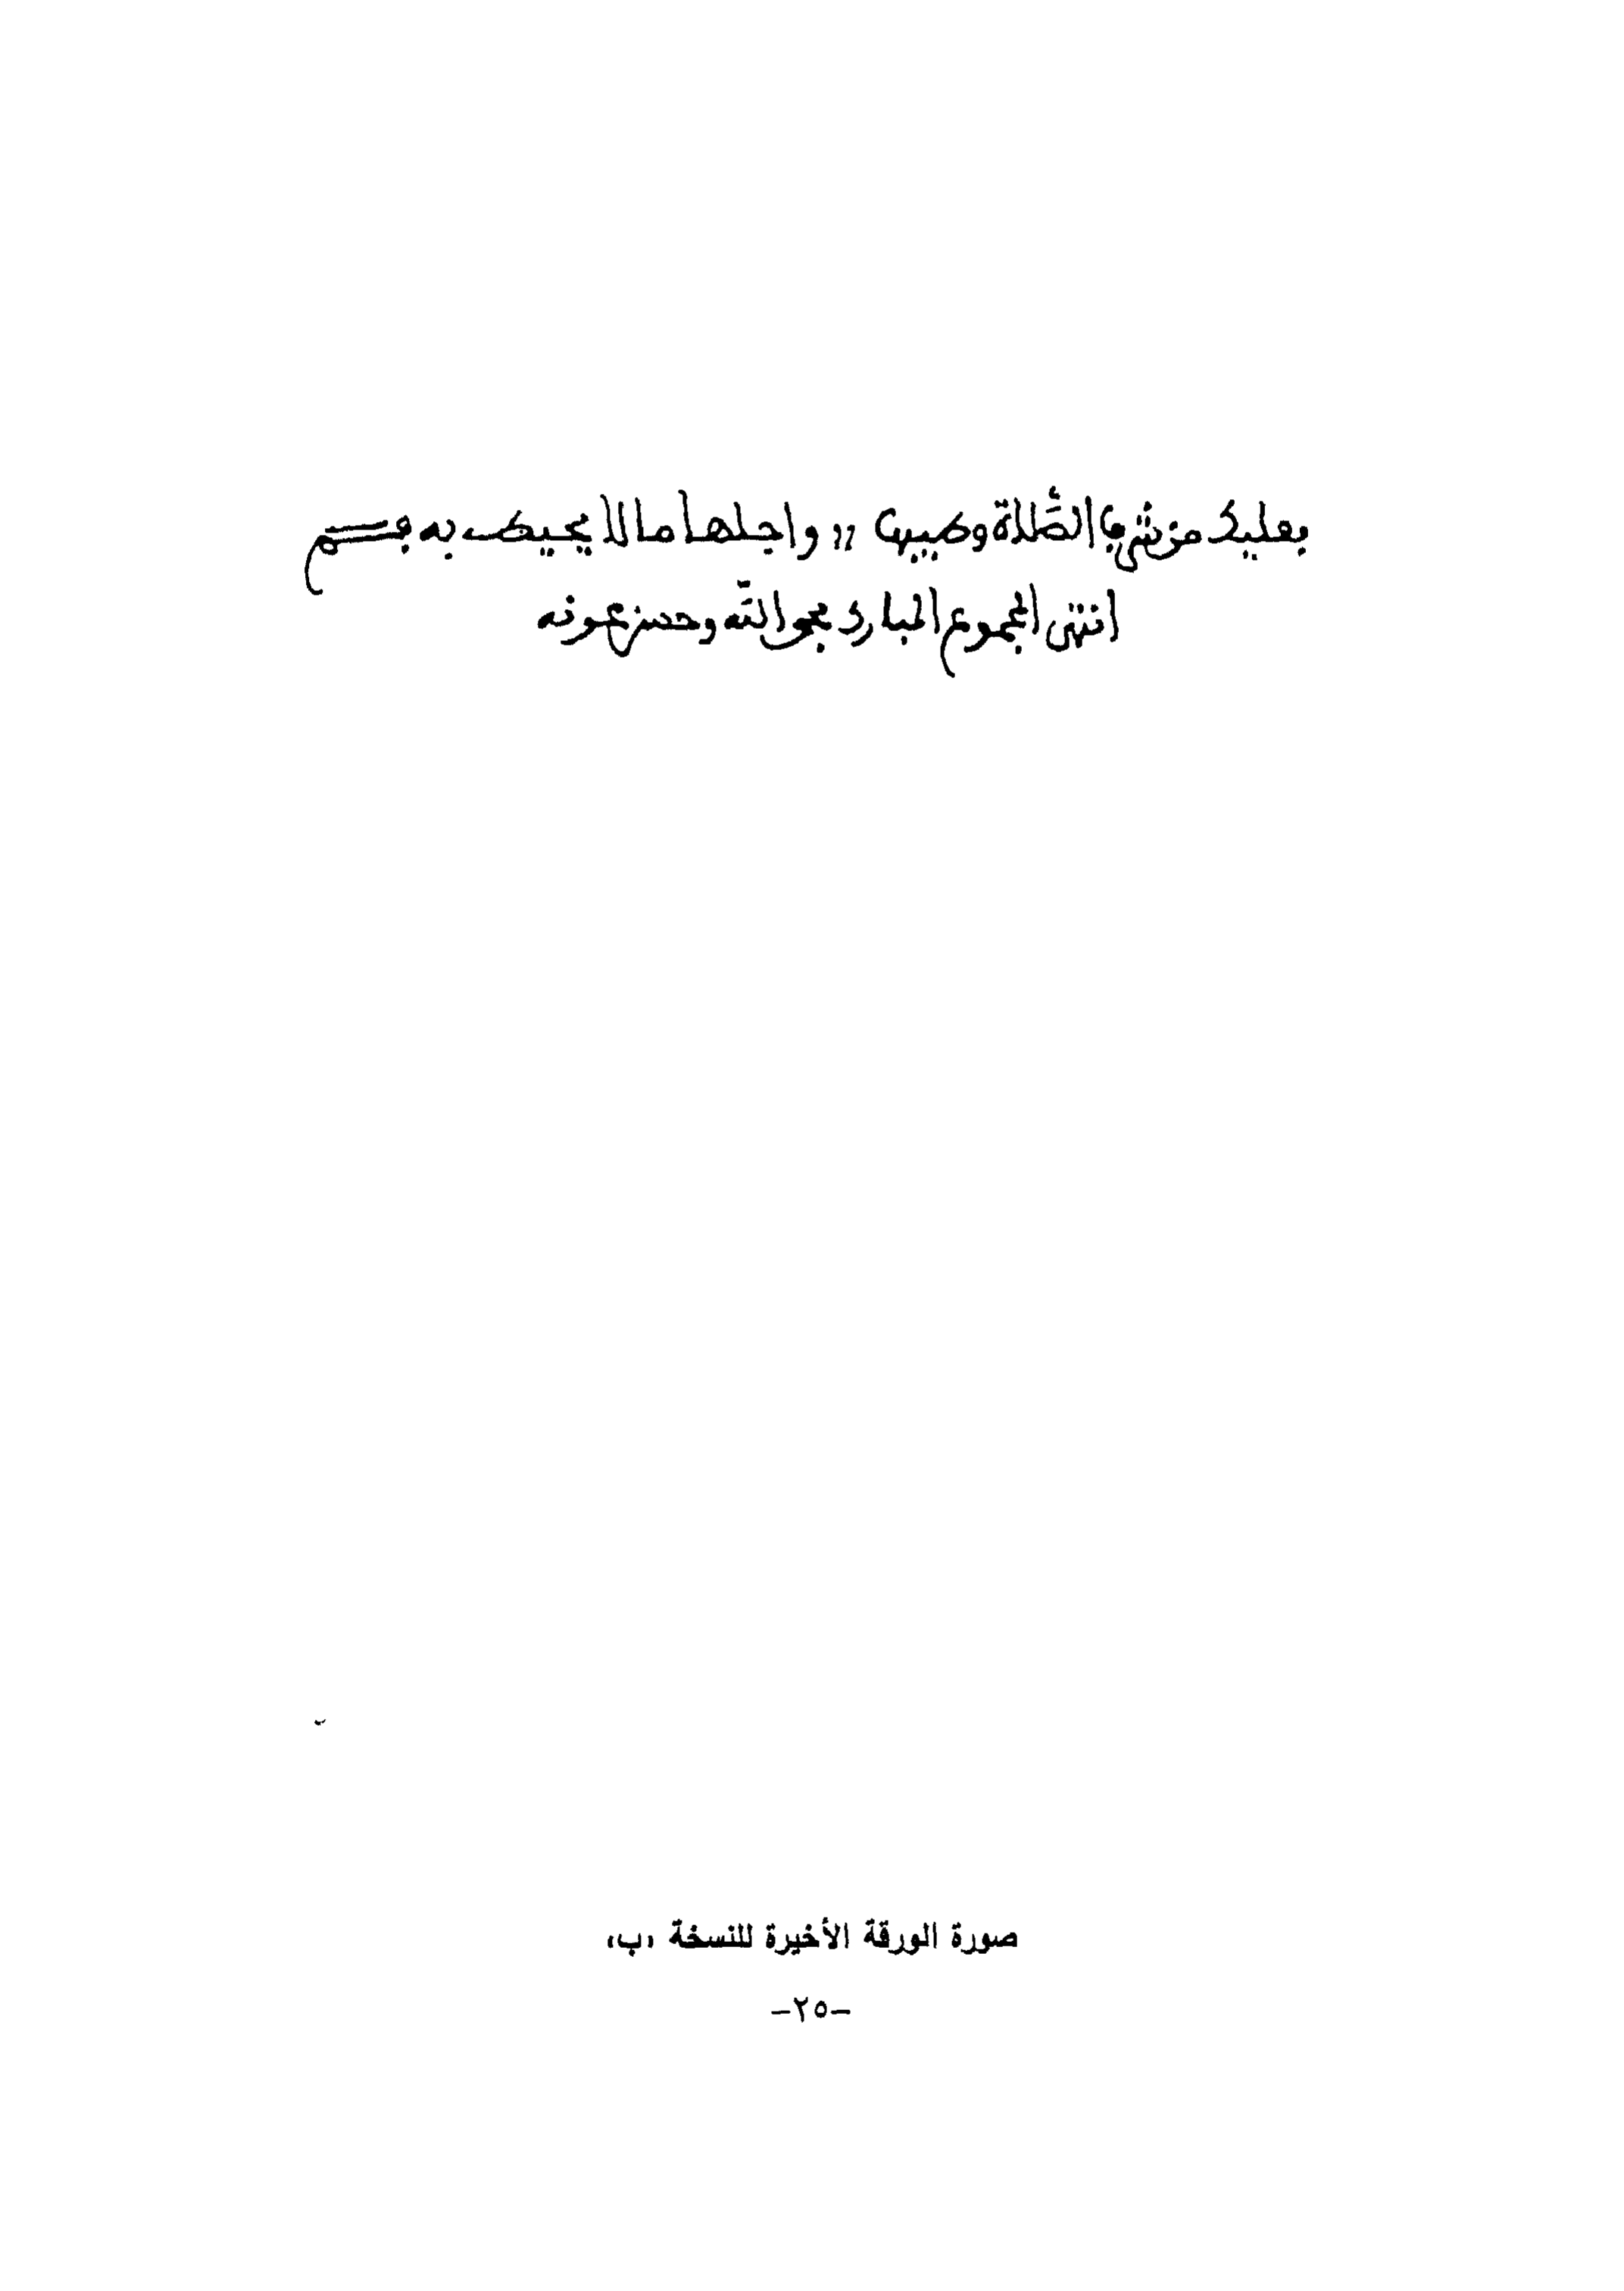 فعليك من شرف الصلاة وطيبها ,, واجلها ما لا يحيط به
انتهى المجموع المبارك بحول الله وحسن عونه
صورة الورقة الأخيرة للنسخة «ب»
-٢٥-